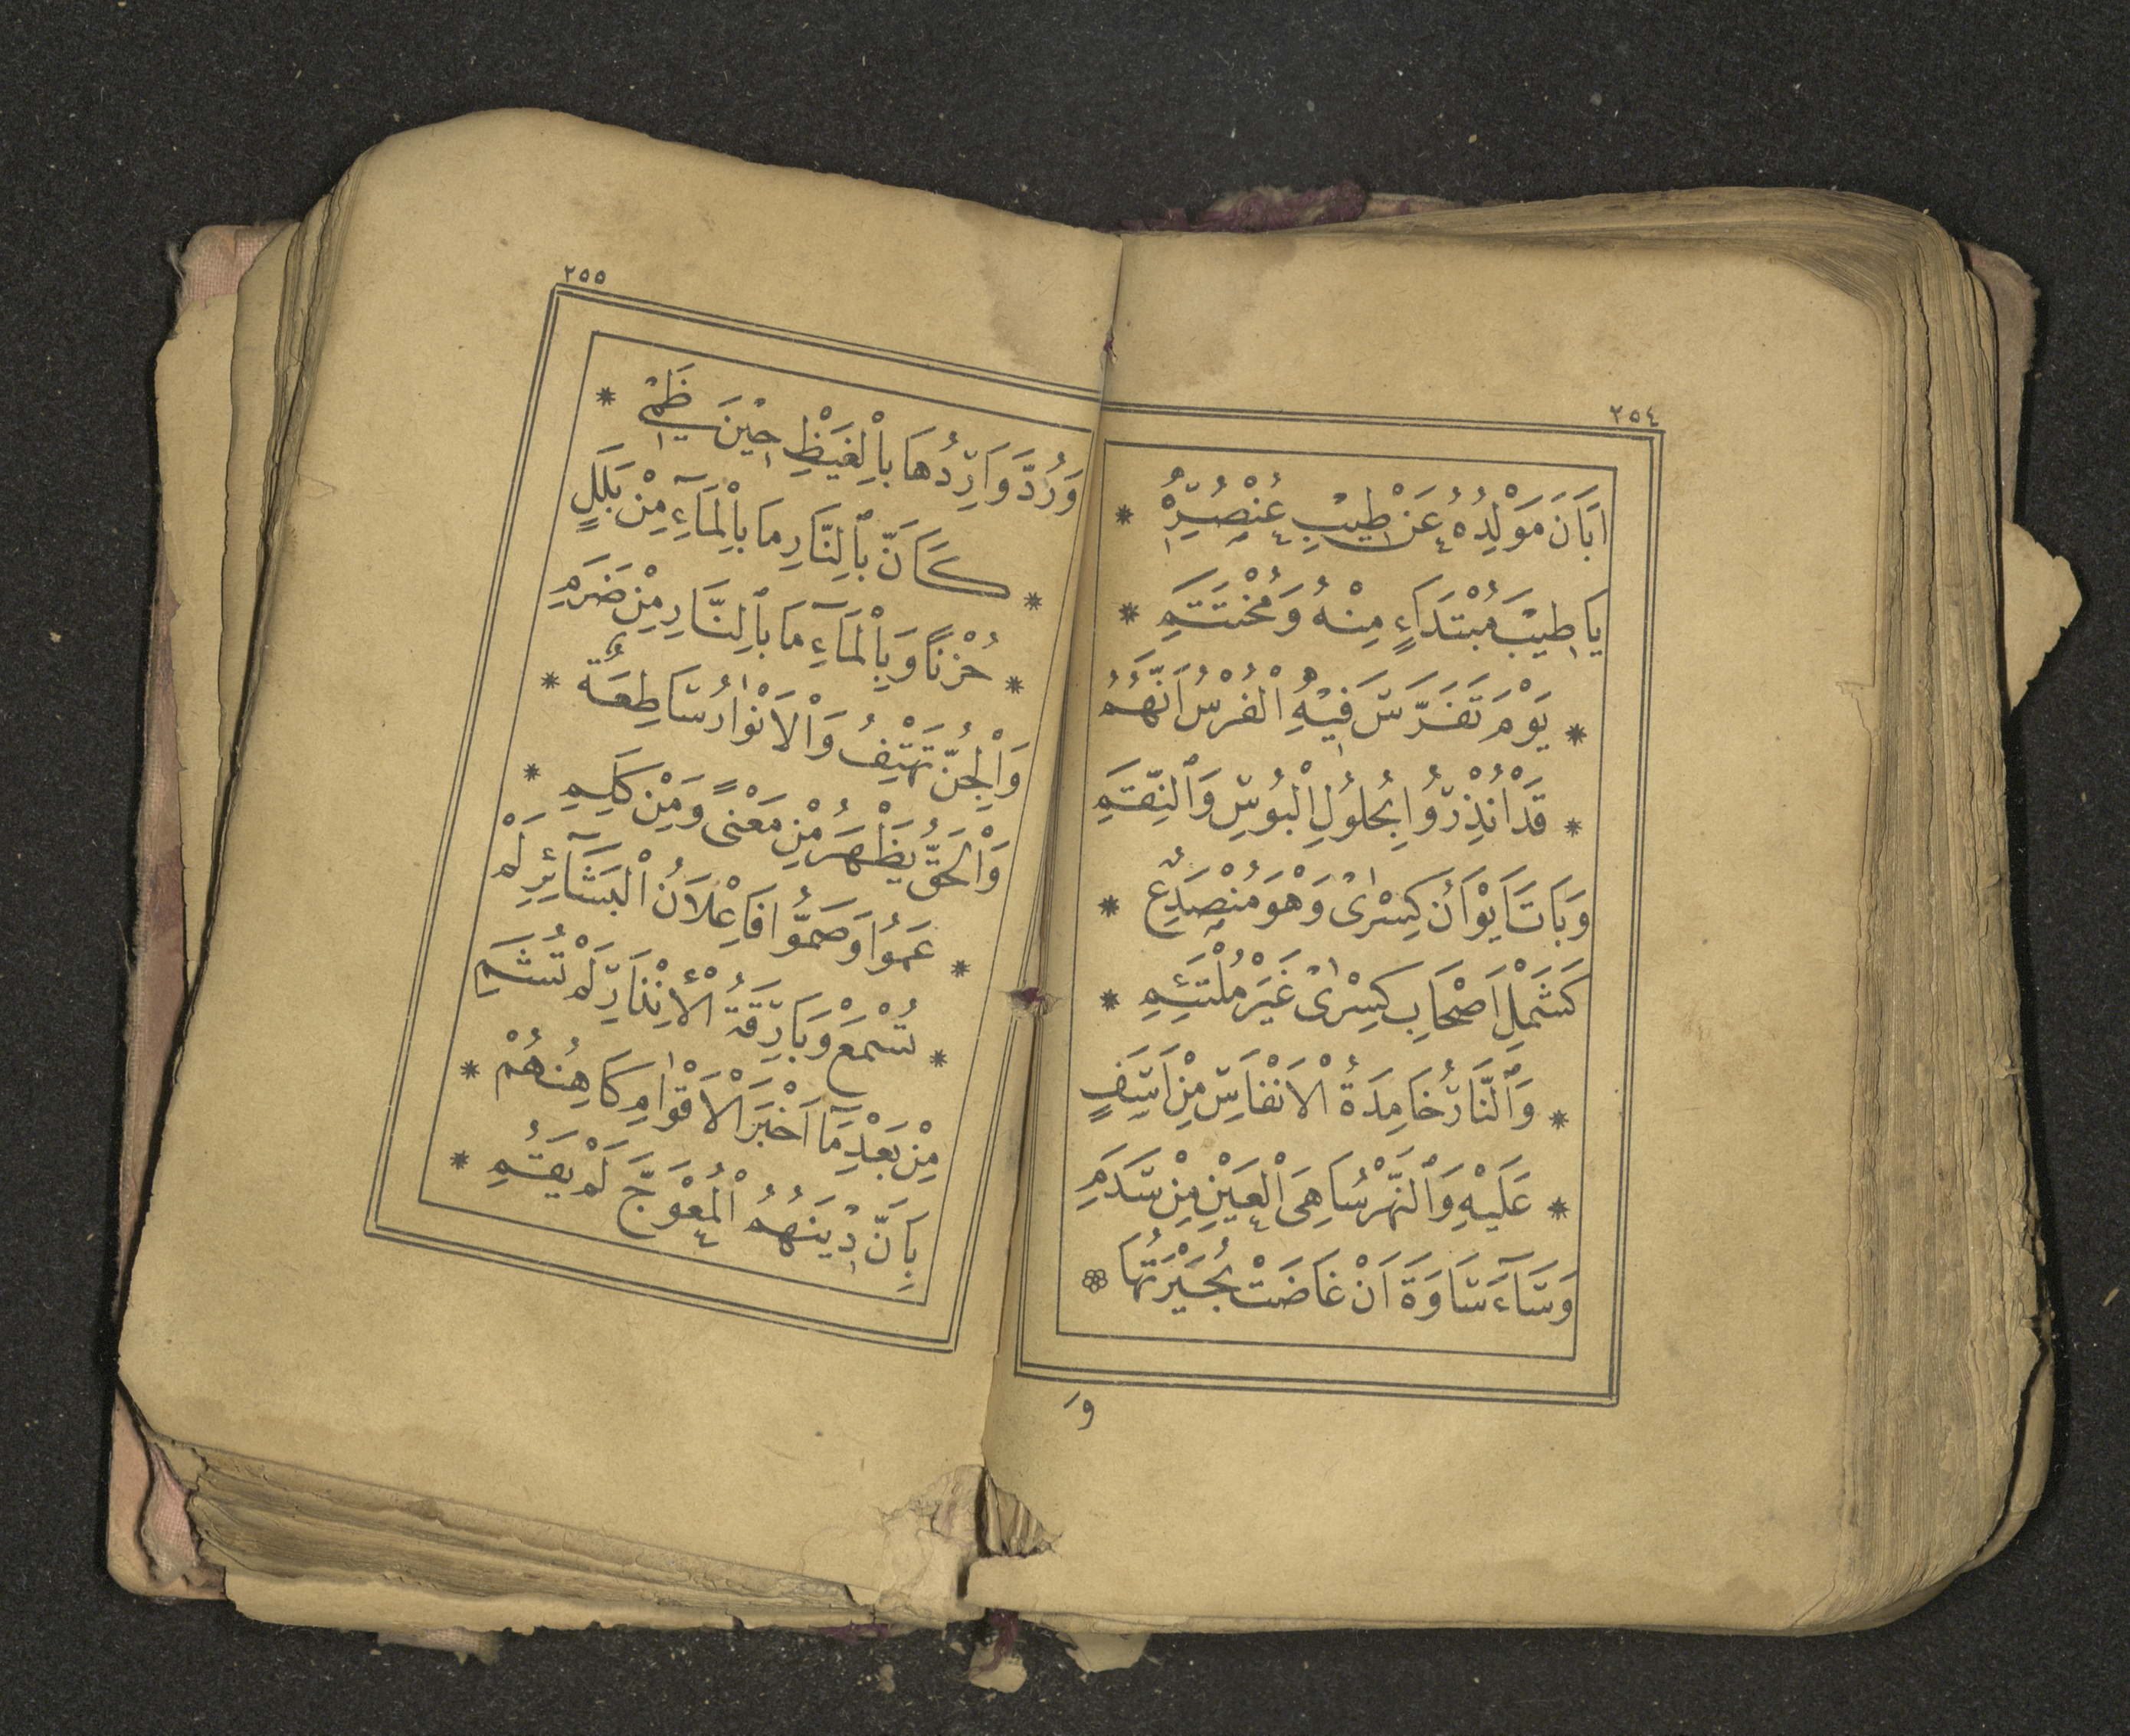 ٢٥٤
اَبَانَ مَوْلِدُهُ عَنْ طِيْبِ عُنْصُرِهِ *
يَا طِيْبَ مُبْتَدَاءٍ مِنْهُ وَمُخْتَتَمِ *
* يَوْمَ تَفَرَّسَ فِيْهِ الْفُرْسُ اَنَّهُمُ
* قَدْ اُنْذِرُوا بِحُلُولِ الْبُوسِ وَالنِّقَمِ
وَبَاتَ اَيْوَانُ كِسْرٰى وَهْوَ مُنْصَدِعٌ *
كَشَمْلِ اَصْحَابِ كِسْرٰى غَيْرَ مُلْتَئِمِ *
* وَالنَّارُ خَامِدَةُ الْاَنْفَاسِ مِنْ اَسَفٍ
* عَلَيْهِ وَالنَّهْرُ سَاهِى الْعَيْنِ مِنْ سَدَمِ
وَسَآءَ سَاوَةَ اَنْ غَاضَتْ بُحَيْرَتُهَا
وَ
٢٥٥
وَرُدَّ وَارِدُهَا بِالْغَيْظِ حِيْنَ ظَمِى *
* كَاَنَّ بِالنَّارِ مَا بِالْمَآءِ مِنْ بَلَلٍ
* حُزْنًا وَبِالْمَآءِ مَا بِالنَّارِ مِنْ ضَرَمِ
وَالْجِنُّ تَهْتِفُ وَالْاَنْوٰارُ سَاطِعَةٌ *
وَالْحَقُّ يَظْهَرُ مِنْ مَعْنًى وَمِنْ كَلِمِ *
* عَمُوا وَصَمُّوا فَاِعْلَانُ الْبَشَآئِرِ لَمْ
* تُسْمَعْ وَبَارِقَةُ الْاِنْذَارِ لَمْ تُشَمِ
مِنْ بَعْدِ مَآ اَخْبَرَ الْاَقْوٰامَ كَاهِنُهُمْ *
بِاَنَّ دِيْنَهُمُ الْمُعْوَجَّ لَمْ يَقُمِ *